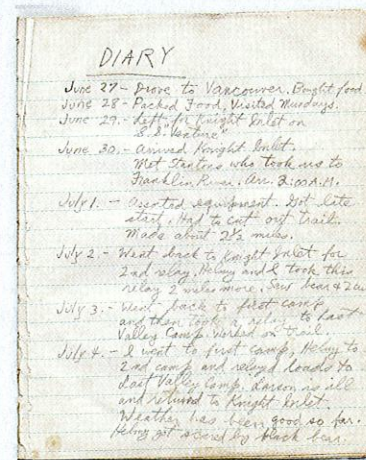 DIARY
June 27 - Drove to Vancouver. Bought food
June 28 - Packed Food, Visited Mundays.
June 29. - Left for Knight Inlet on
S.S "Venture"
June 30. - Arrived Knight Inlet.
Met Stantons who took us to
Franklin River. Arr. 3:00 A.M.
July 1. - Assorted equipment. Got late
start. Had to cut out trail.
Made about 2½ miles.
July 2. - Went back to Knight Inlet for
2nd relay. Helmy and I took this
relay 2 miles more. Saw bear & 2
July 3. - Went back to first camp
and then took a relay to Last
Valley Camp. Worked on trail.
July 4. - I went to first camp, Helmy to
2nd camp and relayed loads to
Last Valley Camp. Larson is ill
and returned to Knight Inlet.
Weather has been good so far.
Helmy got scared by black bear.